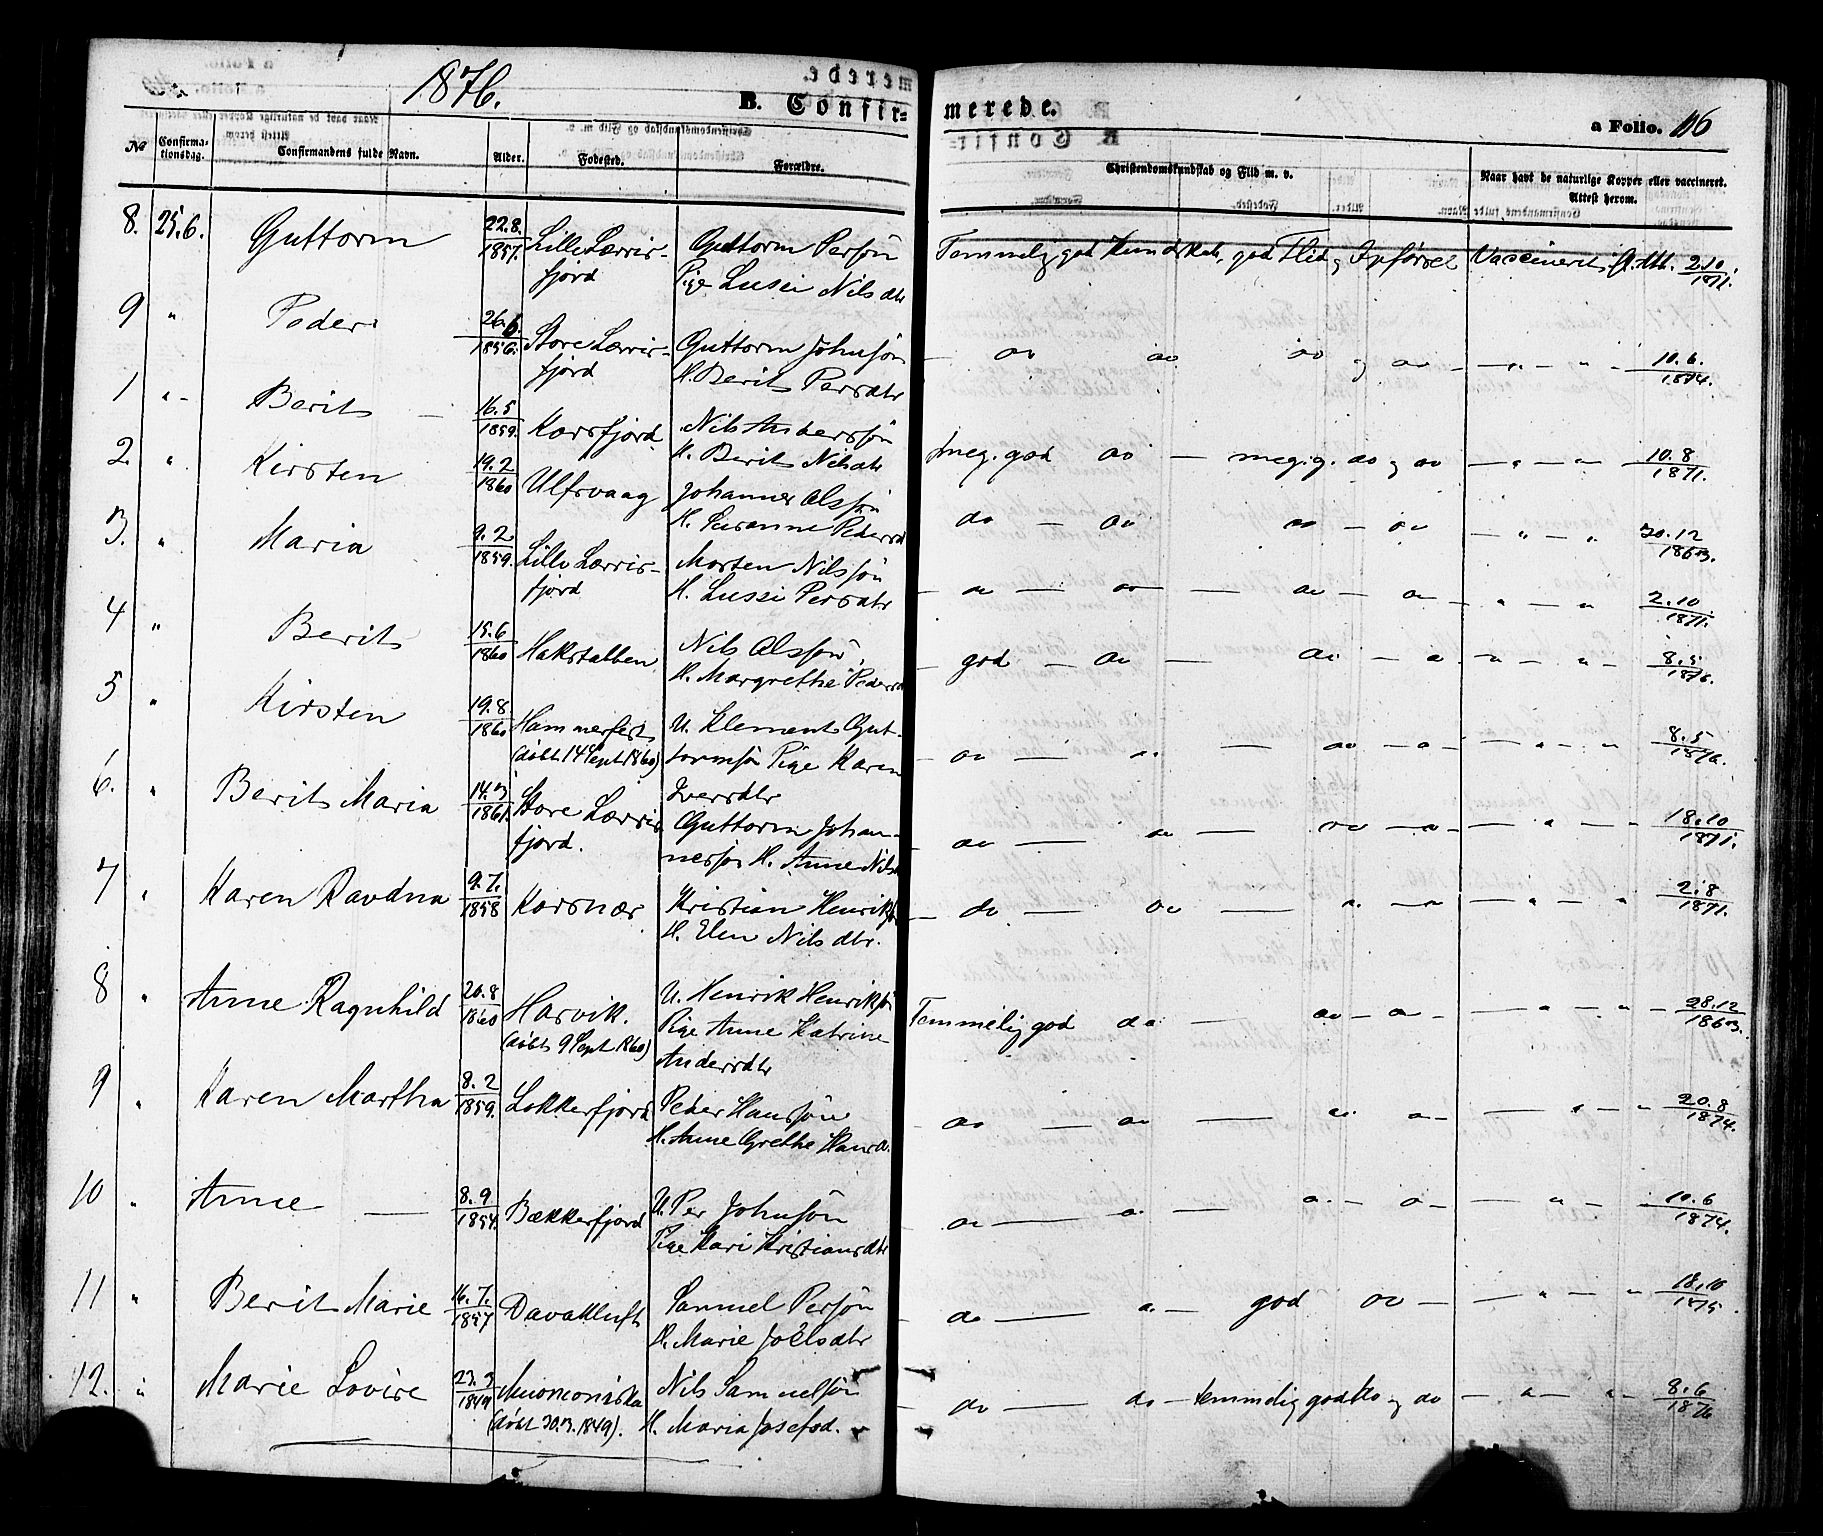 1876.
B. Confir=
merede.
a Folio. 116
No
Confirma-
tionsdag.
Confirmandens fulde Navn.
Alder.
Fødested.
Forældre.
Christendomskundskab og Flid m. v.
Naar havt de naturlige Kopper eller vaccineret.
Attest herom.
8. 25.6. Guttorm 22.8. 1857. Lille Lerris- Guttorm Persøn Temmelig god Kundskab, god Flid og Opførsel Vaccineret, Attt. 2.10. 1871.
fjord Pige Lussi Nilsdtr
9 " Peder 26.6. 1856. Store Lerris- Guttorm Johnsøn — do do do og do — " — " — 10.6. 1874.
fjord H. Berit Persdtr
1 " - Berit — 16.5 1859. Korsfjord Nils Anderssøn meg. god do — meg. g. do og do — " — " — 10.8 1871.
H. Berit Nilsdtr
2. " Kirsten 19.2 1860 Ulfsvaag Johannes Olssøn do — do do — do — " — " 30.12 1863.
H. Susanne Pedersd
3. " Maria 9.2 1859. Lille Lerris- Morten Nilssøn — do — do — do — do — " — " 2.10. 1871.
fjord H. Lussi Persdtr
4 " Berit 15.6 1860 Hakstabben Nils Olssøn — god — do — do — do " — " — 8.5 1876.
H. Margrethe Pedersd
5 " Kirsten 19.8. 1860 Hammerfest U. Klement Gut- — do — do — do — do — — " — " 8.5 1876.
(døbt 14 Sept 1860) tormsøn Pige Karen
Iversdtr
6. " Berit Maria 14.3 1861. Store Lerris Guttorm Johan- — do — do — do — do — — " — " — 18.10 1871.
fjord. nessøn H. Anne Nilsd
7 " Karen Ravdna 9.7. 1858 Korsnæs Kristian Henriks — do — do — " — " — " — " 2.8 1871.
H. Elen Nilsdtr.
8 " Anne Ragnhild 20.8 1860 Harvik. U. Henrik Henriksøn Temmelig god do — do — do — — " — " — 28.12 1863.
(døbt 9 Sept 1860) Pige Anne Katrine
Andersdtr
9 " Karen Martha 8.2 1859. Lokkerfjord Peder Hansøn do — do — do do — — " — " 20.8 1874.
H. Anne Grethe Hansd.
10 " Anne — 8.9 1854. Bækkerfjord U. Per Johnsøn — do — do do — do — — " — 10.6 1874.
Pige Kari Kristiansdtr
11 " Berit Marie 16.7. 1857 Davakluft Samuel Persøn — do — do — god do — — " — " 18.10 1875
H. Marie Joelsdtr
12. " Marie Lovise 23.3 1849 Muonioniska Nils Samuelsøn — do — do — temmelig god do og do — " — " — 8.6 1876
(døbt 30.3.1849). H. Maria Josefsd.